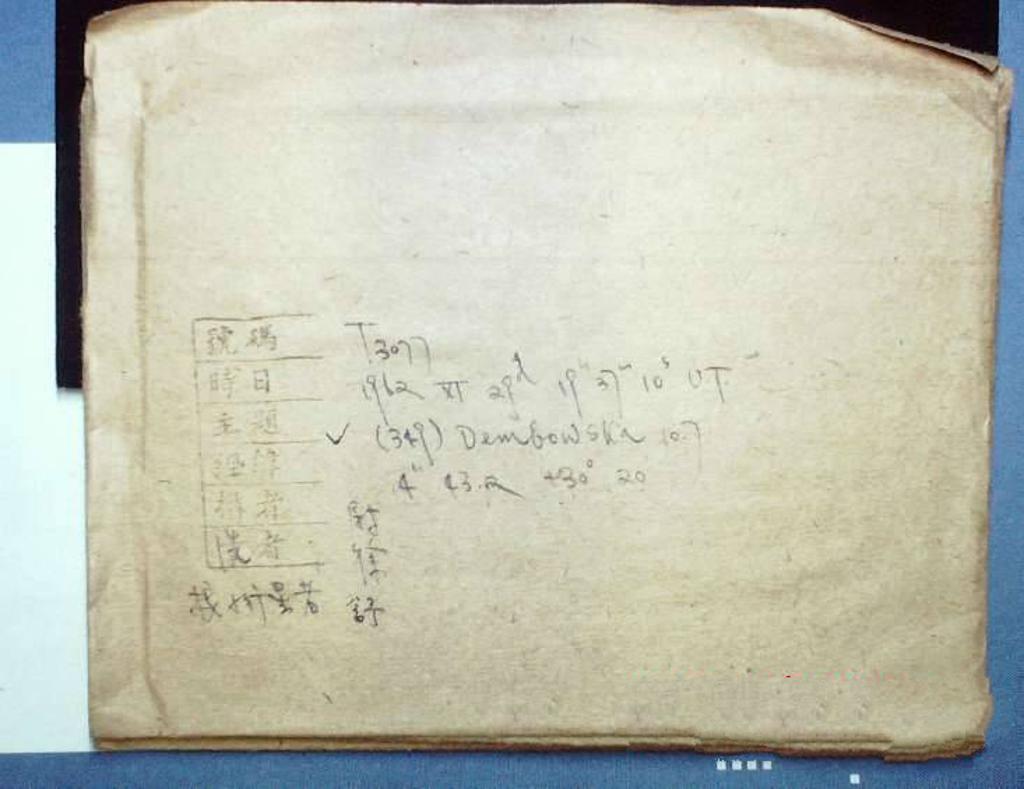 號碼 T3077
時日 1962 XI 29d 19h 37m 10s UT
主題 ✓ (349) Dembowska 10.7
經緯 4h 43.2 +30° 20
攝者
洗者 徐
新星者 舒